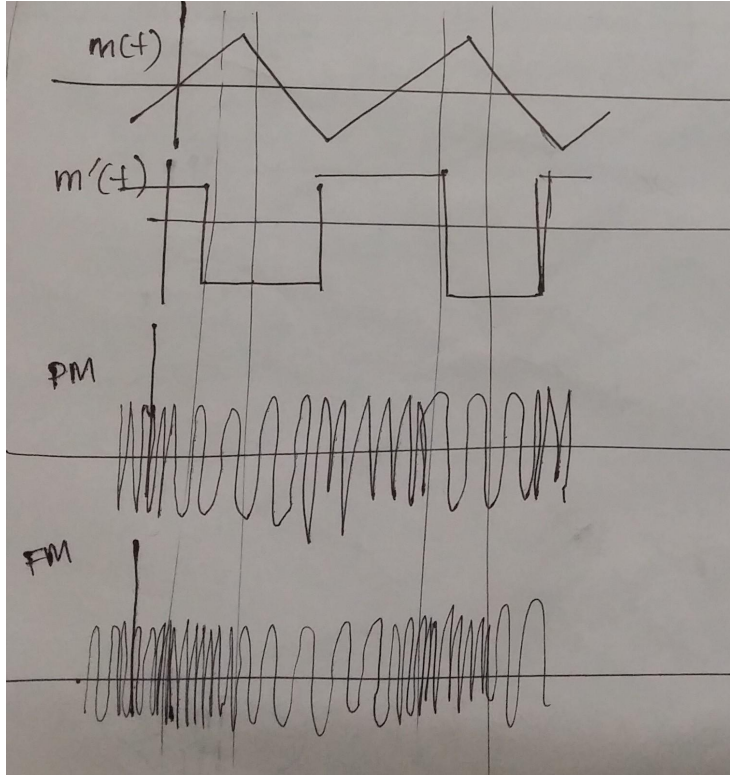 m(t)
m'(t)
PM
FM